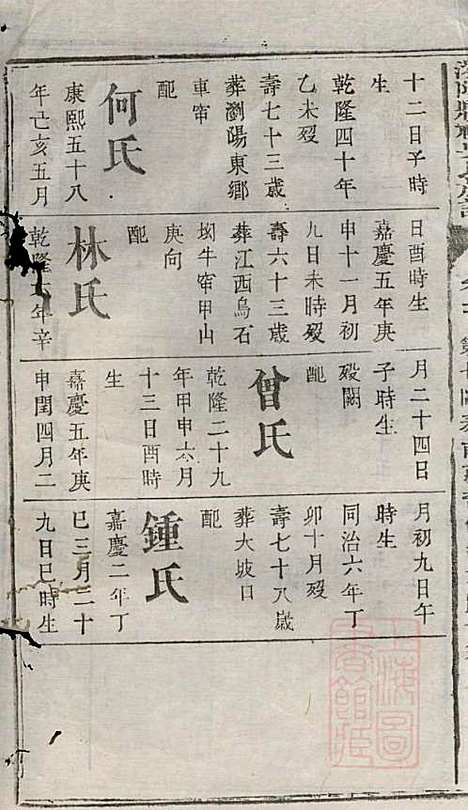 十二日子時
生
乾隆四十年
乙未歿
壽七十三歲
葬瀏陽東鄉
車帘
配
何氏
康熙五十八
年亡亥五月
日酉時生
嘉慶五年庚
申十一月初
九日未時歿
壽六十三歲
葬江西烏石
坳牛帘甲山
庚向
配
林氏
乾隆六年辛
月二十四日
子時生
歿闕
配
曾氏
乾隆二十九
年甲申六月
十三日酉時
生
嘉慶五年庚
申閏四月二
月初九日午
時生
同治六年丁
卯十月歿
壽七十八歲
葬大坡口
配
鍾氏
嘉慶二年丁
巳三月二十
九日巳時生
上海圖
書館藏